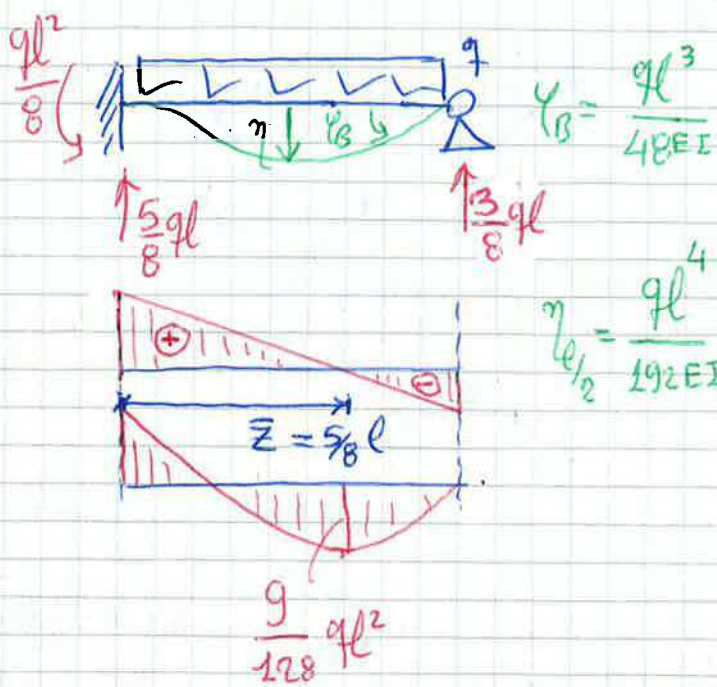 ql²/8
q
η
φ_B
φ_B = ql³/48EI
5/8 ql
3/8 ql
η_{ℓ/2} = ql⁴/192EI
+
-
z̄ = 5/8 ℓ
9/128 ql²